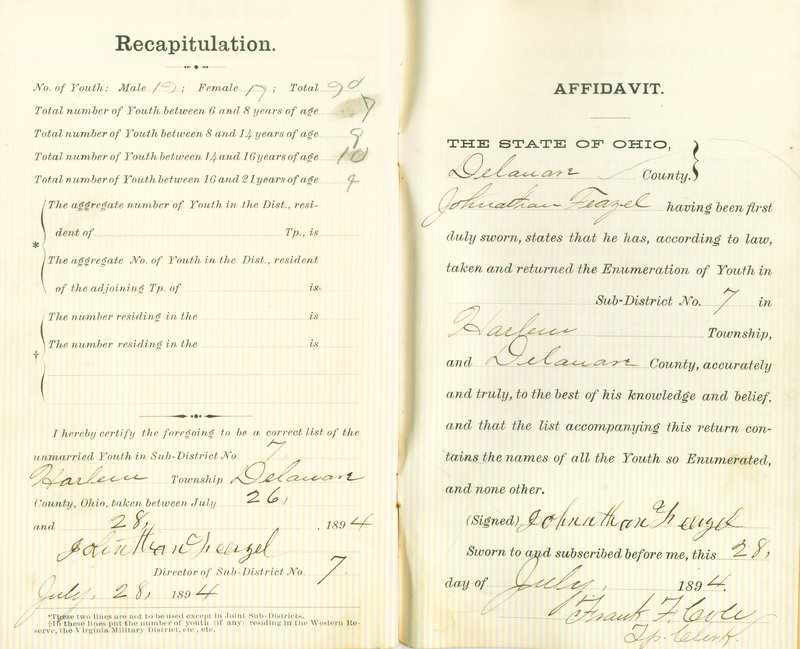 Recapitulation.
No. of Youth: Male 12; Female 17; Total
Total number of Youth between 6 and 8 years of age 7
Total number of Youth between 8 and 14 years of age 9
Total number of Youth between 14 and 16 years of age 10
Total number of Youth between 16 and 21 years of age 4
The aggregate number of Youth in the Dist., resi-
dent of Tp., is
*
The aggregate No. of Youth in the Dist., resident
of the adjoining Tp. of is
The number residing in the is
†
The number residing in the is
I hereby certify the foregoing to be a correct list of the
unmarried Youth in Sub-District No 7,
Harlem Township Delaware
County, Ohio, taken between July 26,
and 28, , 1894
Johnathan Feazel
Director of Sub-District No. 7.
July, 28, 1894
*These two lines are not to be used except in Joint Sub-Districts.
†In these lines put the number of youth (if any) residing in the Western Re-
serve, the Virginia Military District, etc., etc.
AFFIDAVIT.
THE STATE OF OHIO,
Delaware County.
Johnathan Feazel having been first
duly sworn, states that he has, according to law,
taken and returned the Enumeration of Youth in
Sub-District No. 7 in
Harlem Township,
and Delaware County, accurately
and truly, to the best of his knowledge and belief,
and that the list accompanying this return con-
tains the names of all the Youth so Enumerated,
and none other.
(Signed) Johnathan Feazel
Sworn to and subscribed before me, this 28,
day of July, 1894.
Frank F. Cole
Tp. Clerk.